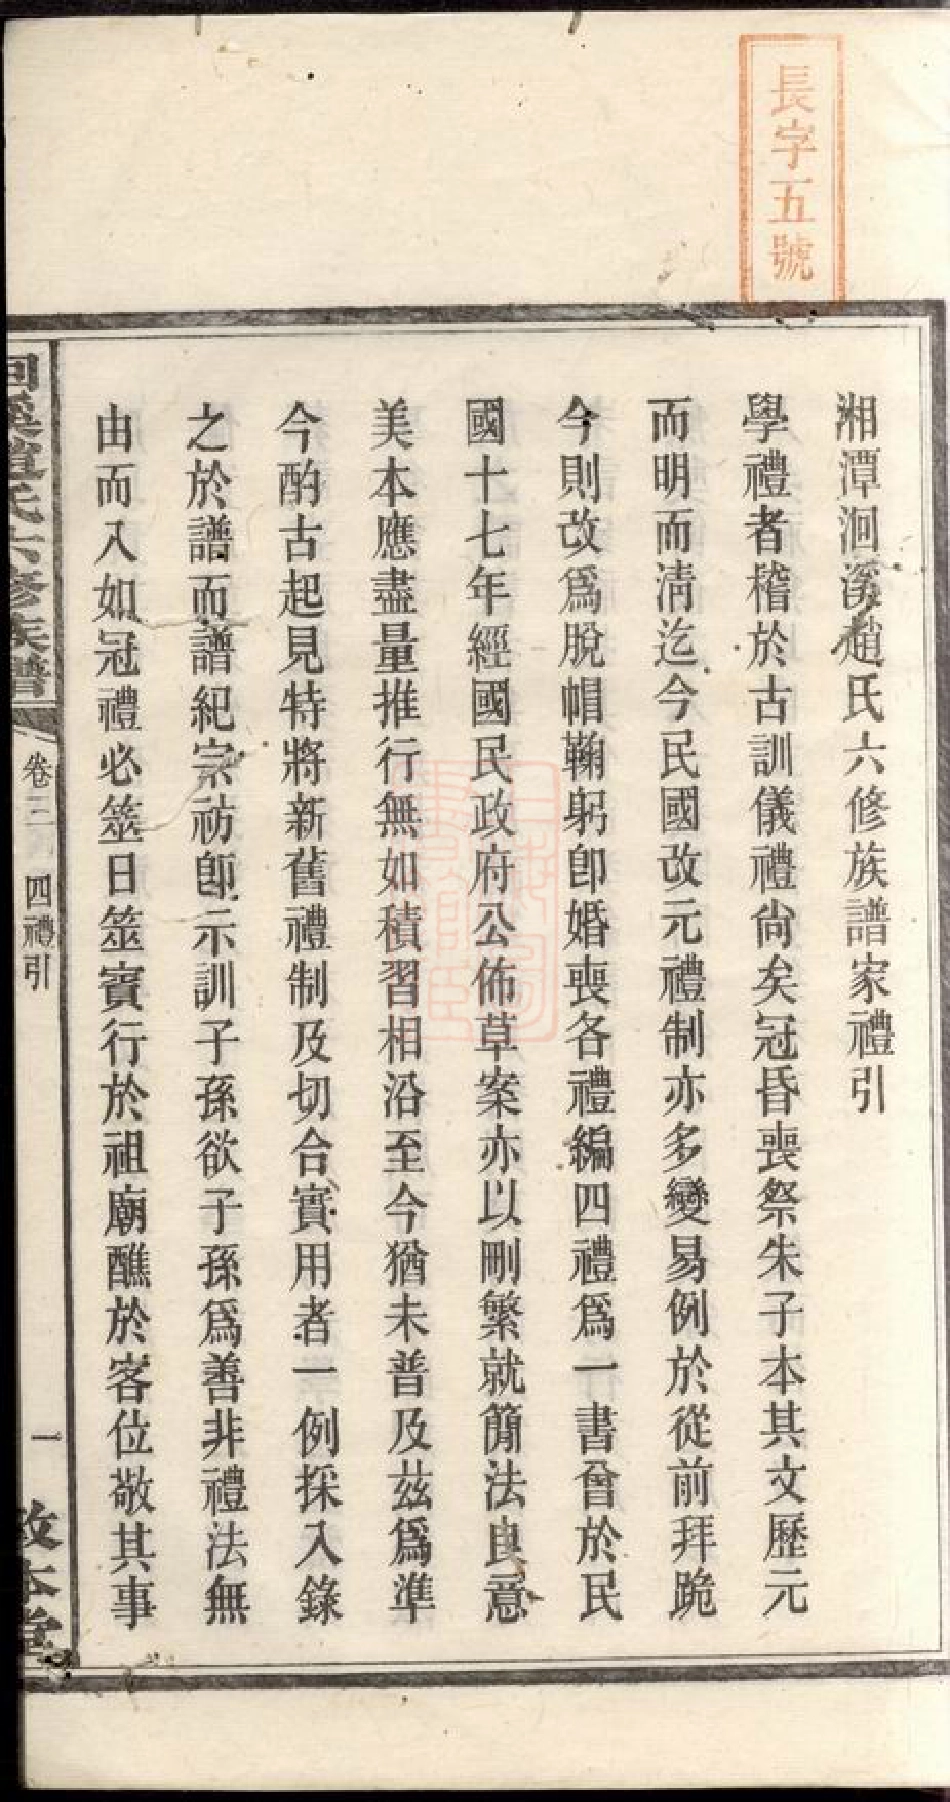 長字五號
湘潭洄溪趙氏六修族譜家禮引
學禮者稽於古訓儀禮尙矣冠昏喪祭朱子本其文歷元
而明而淸迄今民國改元禮制亦多變易例於從前拜跪
今則改爲脫帽鞠躬卽婚喪各禮編四禮爲一書曾於民
國十七年經國民政府公佈草案亦以刪繁就簡法良意
美本應盡量推行無如積習相沿至今猶未普及茲爲準
今酌古起見特將新舊禮制及切合實用者一例採入錄
之於譜而譜紀宗祊卽示訓子孫欲子孫爲善非禮法無
由而入如冠禮必筮日筮賓行於祖廟醮於客位敬其事
洄溪趙氏六修族譜
卷三
四禮引
一
敦本堂